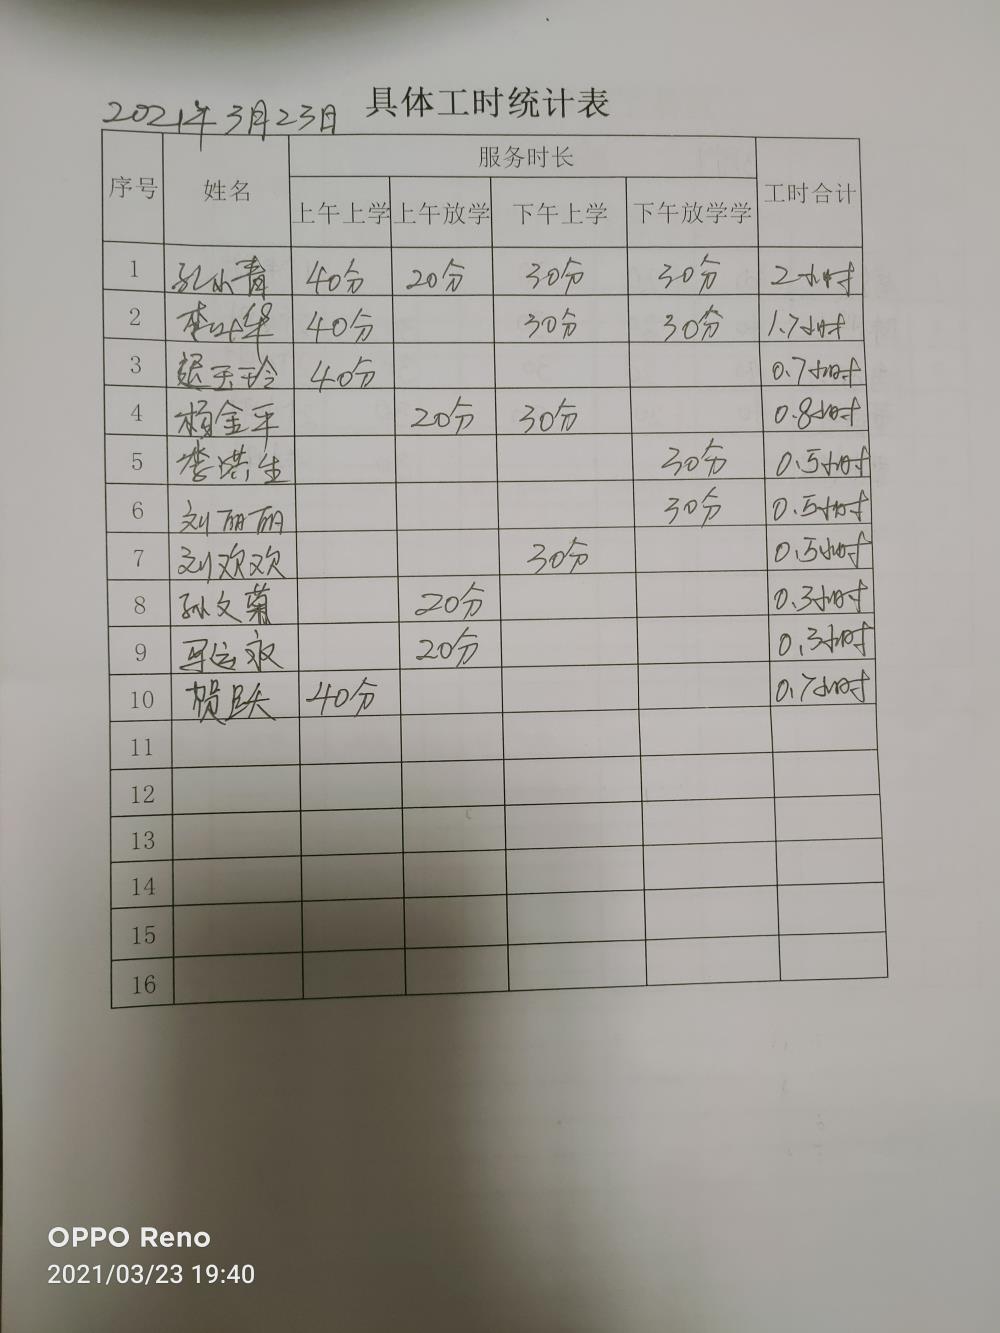 2021年3月23日 具体工时统计表
序号 姓名 服务时长 工时合计
上午上学 上午放学 下午上学 下午放学学
1 孔小青 40分 20分 30分 30分 2小时
2 李叶华 40分 30分 30分 1.7小时
3 玉玲 40分 0.7小时
4 杨金平 20分 30分 0.8小时
5 李洪生 30分 0.5小时
6 刘丽丽 30分 0.5小时
7 刘欢欢 30分 0.5小时
8 孙文菊 20分 0.3小时
9 20分 0.3小时
10 40分 0.7小时
11
12
13
14
15
16
OPPO Reno
2021/03/23 19:40